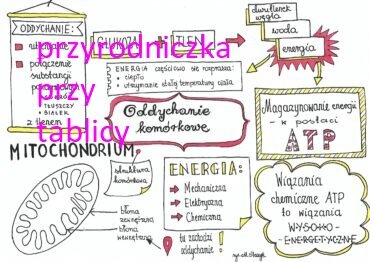 ODDYCHANIE:
GLUKOZA
TLEN
dwutlenek
węgla
woda
energia
połączenie
substancji
TŁUSZCZY
BIAŁEK
z tlenem
ENERGIA częściowo się rozprasza:
ciepło
utrzymanie stałej temperatury ciała
przyrodniczka
przy
tablicy
Oddychanie
komórkowe
Magazynowanie energii
w postaci
ATP
MITOCHONDRIUM
struktura
komórkowa
błona
zewnętrzna
błona
wewnętrzna
tu zachodzi
oddychanie!
ENERGIA:
Mechaniczna
Elektryczna
Chemiczna
Wiązania
chemiczne ATP
to wiązania
WYSOKO-
-ENERGETYCZNE